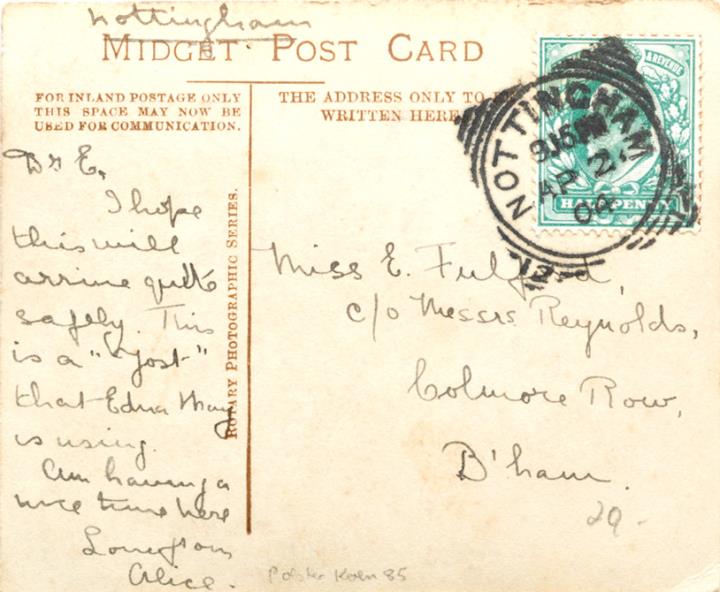 Nottingham
MIDGET POST CARD
FOR INLAND POSTAGE ONLY
THIS SPACE MAY NOW BE
USED FOR COMMUNICATION.
THE ADDRESS ONLY TO
WRITTEN HERE
& REVENUE
HALFPENNY
NOTTINGHAM
9.15 PM
AP 2
06
ROTARY PHOTOGRAPHIC SERIES.
Dr E,
I hope
this will
arrive quite
safely. This
is a "Yost"
that Edna May
is using.
Am having a
nice time here
Love from
Alice.
Miss E. Fulford,
c/o Messrs Reynolds,
Colmore Row,
B'ham.
29-
85